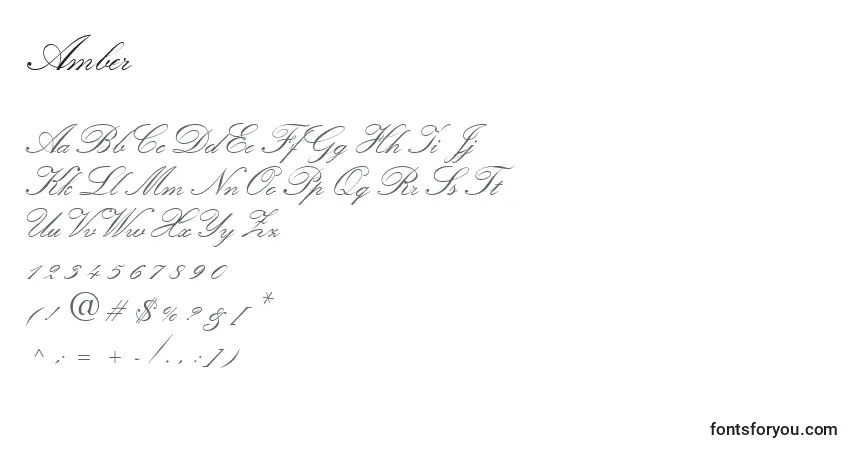 Amber
Aa Bb Cc Dd Ee Ff Gg Hh Ii Jj
Kk Ll Mm Nn Oo Pp Qq Rr Ss Tt
Uu Vv Ww Xx Yy Zz
1 2 3 4 5 6 7 8 9 0
( ! @ # $ % ? & [ *
^ ; = + - / . , : ] )
fontsforyou.com